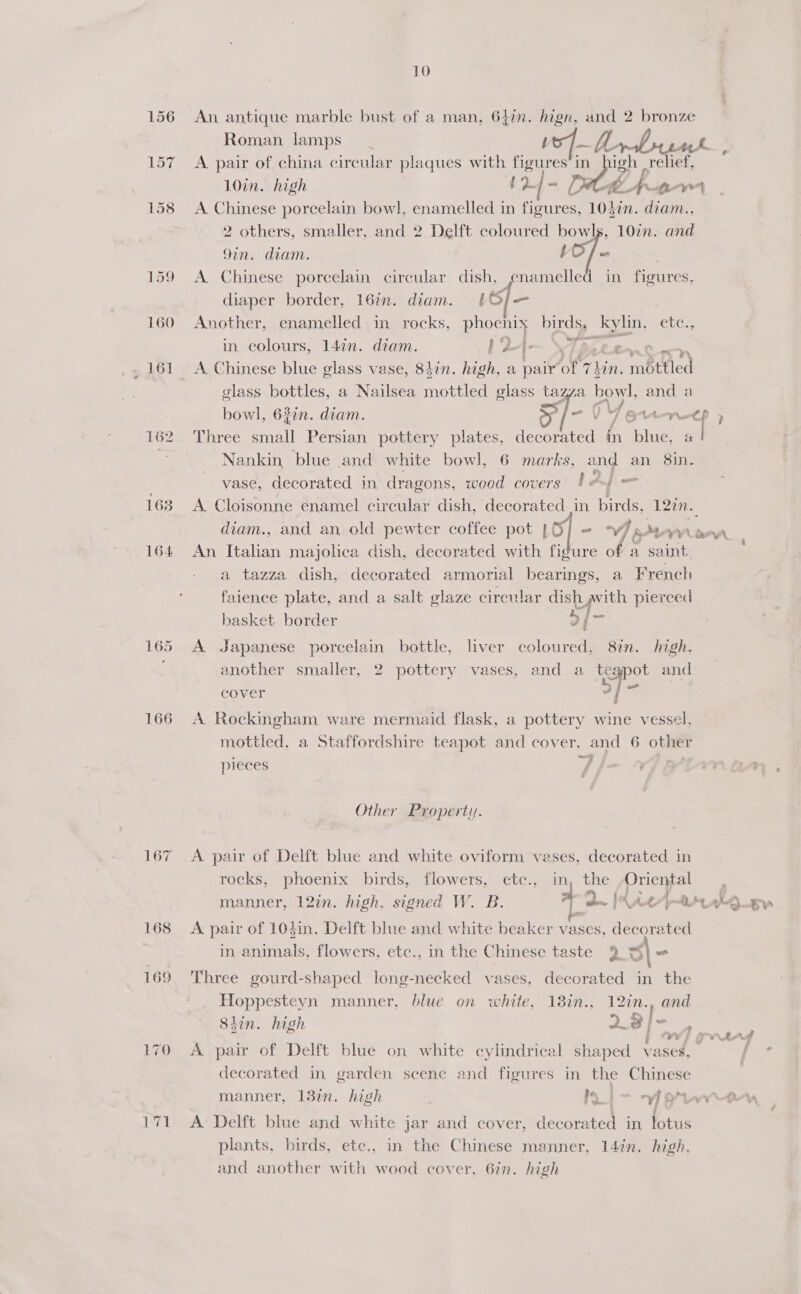 10
156 An antique marble bust of a man, 6½in. hign, and 2 bronze
Roman lamps
157 A pair of china circular plaques with figures in high relief,
10in. high 12/-
158 A Chinese porcelain bowl, enamelled in figures, 10½in. diam.,
2 others, smaller, and 2 Delft coloured bowls, 10in. and
9in. diam. 10/-
159 A Chinese porcelain circular dish, enamelled in figures,
diaper border, 16in. diam. 16/-
160 Another, enamelled in rocks, phoenix birds, kylin, etc.,
in colours, 14in. diam. 12/-
161 A Chinese blue glass vase, 8½in. high, a pair of 7½in. mottled
glass bottles, a Nailsea mottled glass tazza bowl, and a
bowl, 6¾in. diam. 5/-
162 Three small Persian pottery plates, decorated in blue, a
Nankin blue and white bowl, 6 marks, and an 8in.
vase, decorated in dragons, wood covers
163 A Cloisonne enamel circular dish, decorated in birds, 12in.
diam., and an old pewter coffee pot
164 An Italian majolica dish, decorated with figure of a saint
a tazza dish, decorated armorial bearings, a French
faience plate, and a salt glaze circular dish with pierced
basket border 5/-
165 A Japanese porcelain bottle, liver coloured, 8in. high.
another smaller, 2 pottery vases, and a teapot and
cover 5/-
166 A Rockingham ware mermaid flask, a pottery wine vessel,
mottled, a Staffordshire teapot and cover, and 6 other
pieces
Other Property.
167 A pair of Delft blue and white oviform vases, decorated in
rocks, phoenix birds, flowers, etc., in the Oriental
manner, 12in. high, signed W. B.
168 A pair of 10½in. Delft blue and white beaker vases, decorated
in animals, flowers, etc., in the Chinese taste
169 Three gourd-shaped long-necked vases, decorated in the
Hoppesteyn manner, blue on white, 13in., 12in., and
8½in. high 28/-
170 A pair of Delft blue on white cylindrical shaped vases,
decorated in garden scene and figures in the Chinese
manner, 13in. high
171 A Delft blue and white jar and cover, decorated in lotus
plants, birds, etc., in the Chinese manner, 14in. high,
and another with wood cover, 6in. high